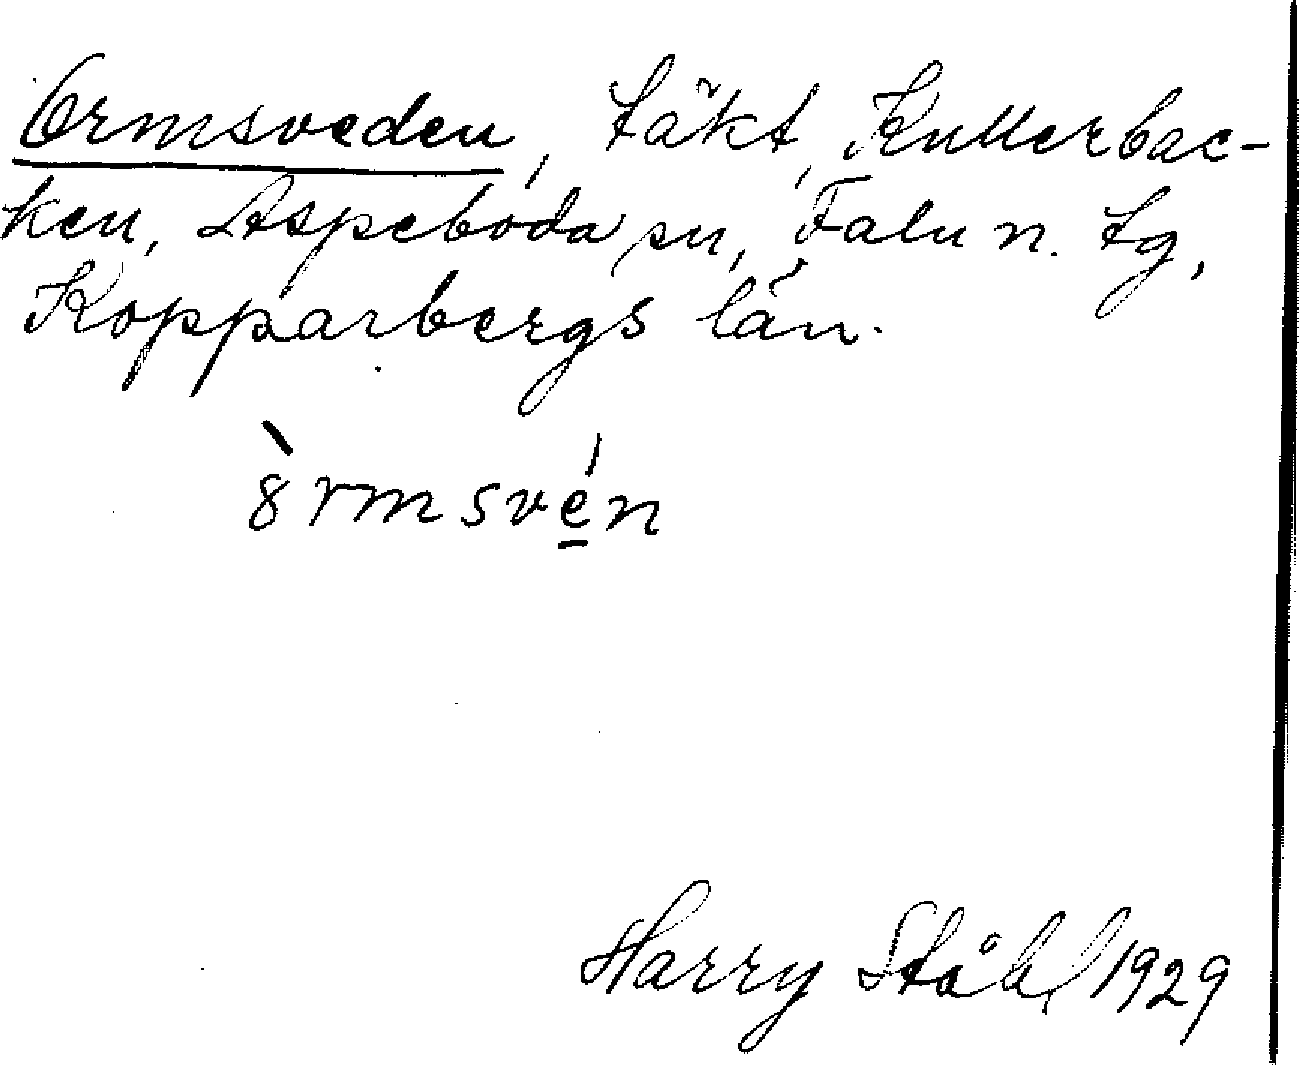 Ormsveden, täkt, Kullerbac-
ken, Aspeboda sn, Falu n. tg,
Kopparbergs län.
8̀rmsvé̱n
Harry Ståhl 1929